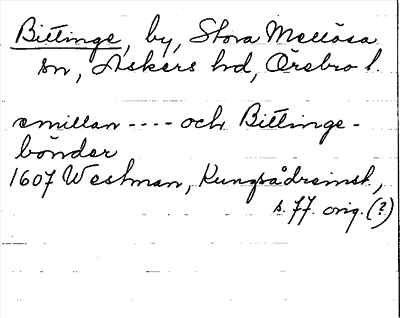 Bittinge, by, Stora Mellösa
sn, Askers hd, Örebro l.
emillan ---- och Bittinge-
bönder
1607 Westman, Kungsådreinst,
s. 77. orig. (?)